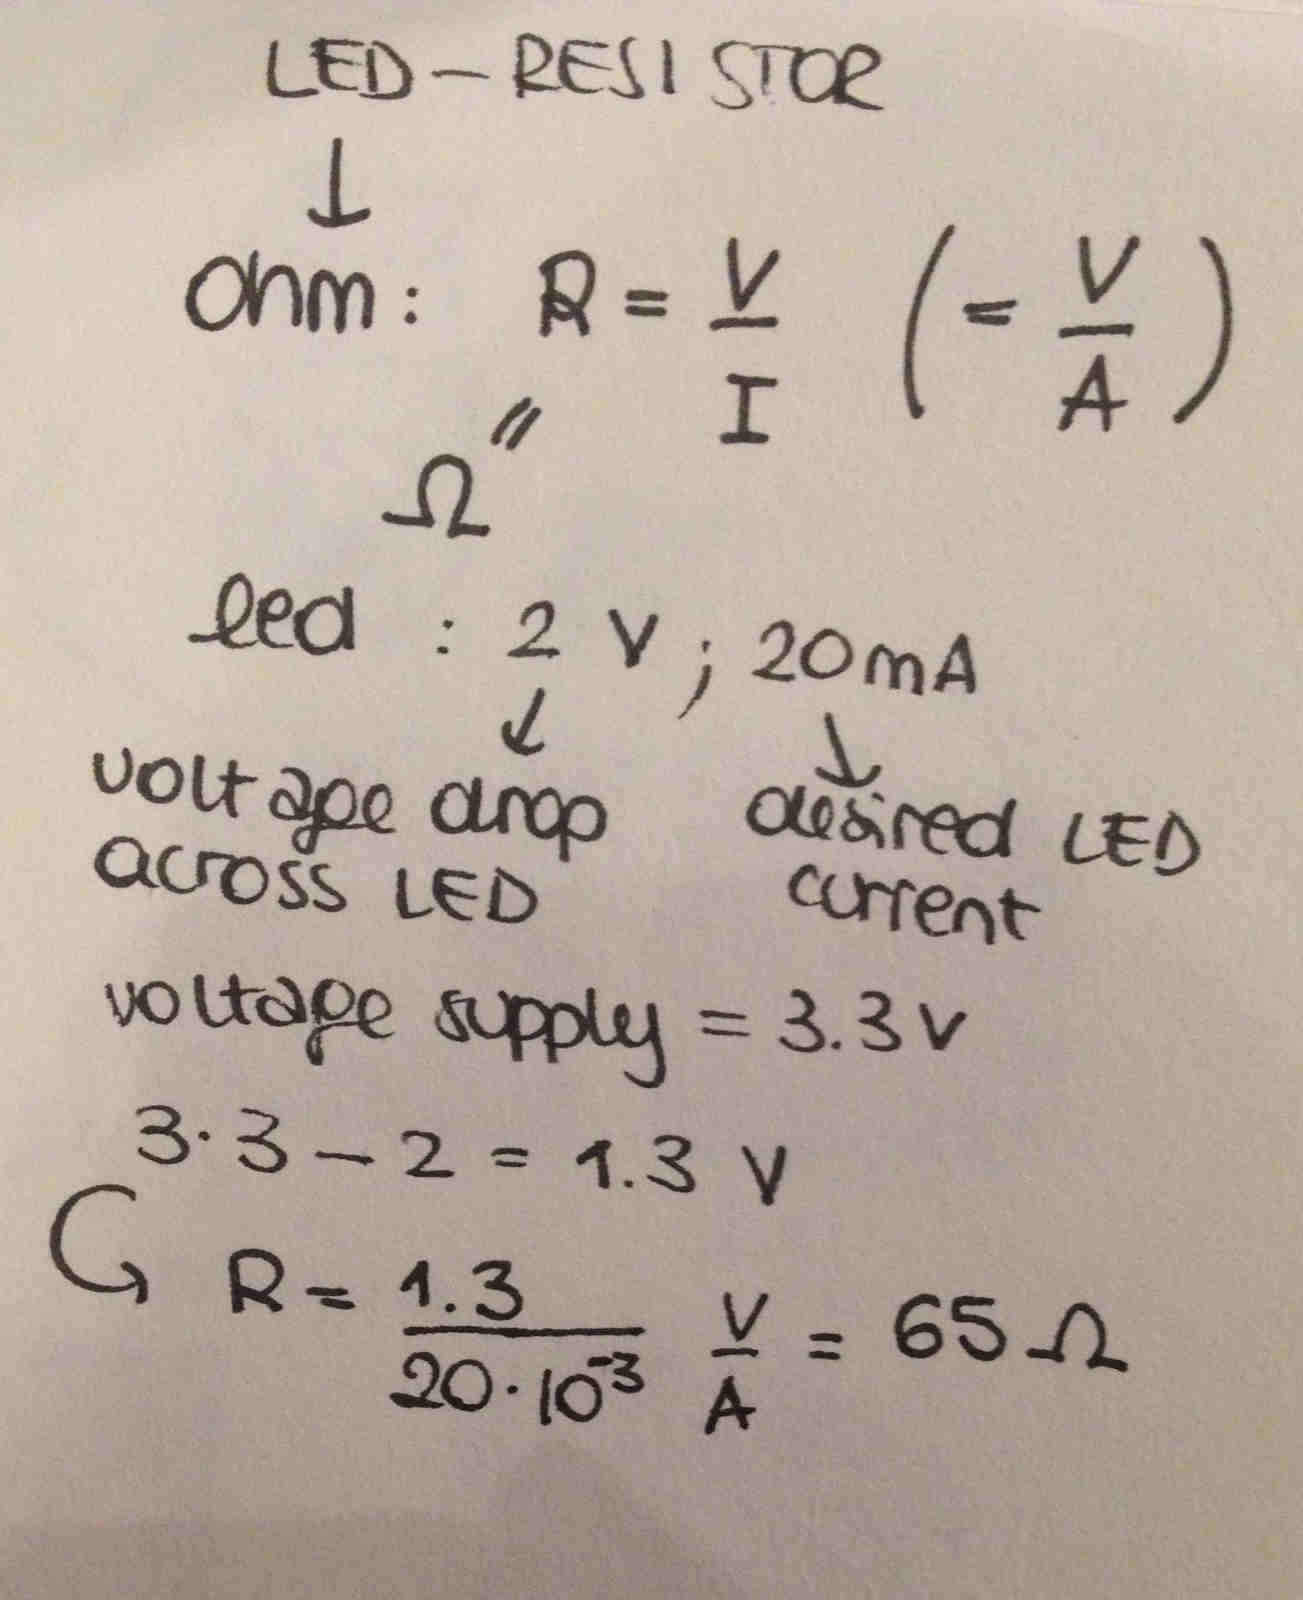 LED - RESISTOR
↓
Ohm: R = V/I (= V/A)
" Ω
led : 2 V ; 20 mA
↓ ↓
voltage drop desired LED
across LED current
voltage supply = 3.3 V
3.3 - 2 = 1.3 V
R = 1.3/20·10⁻³ V/A = 65 Ω